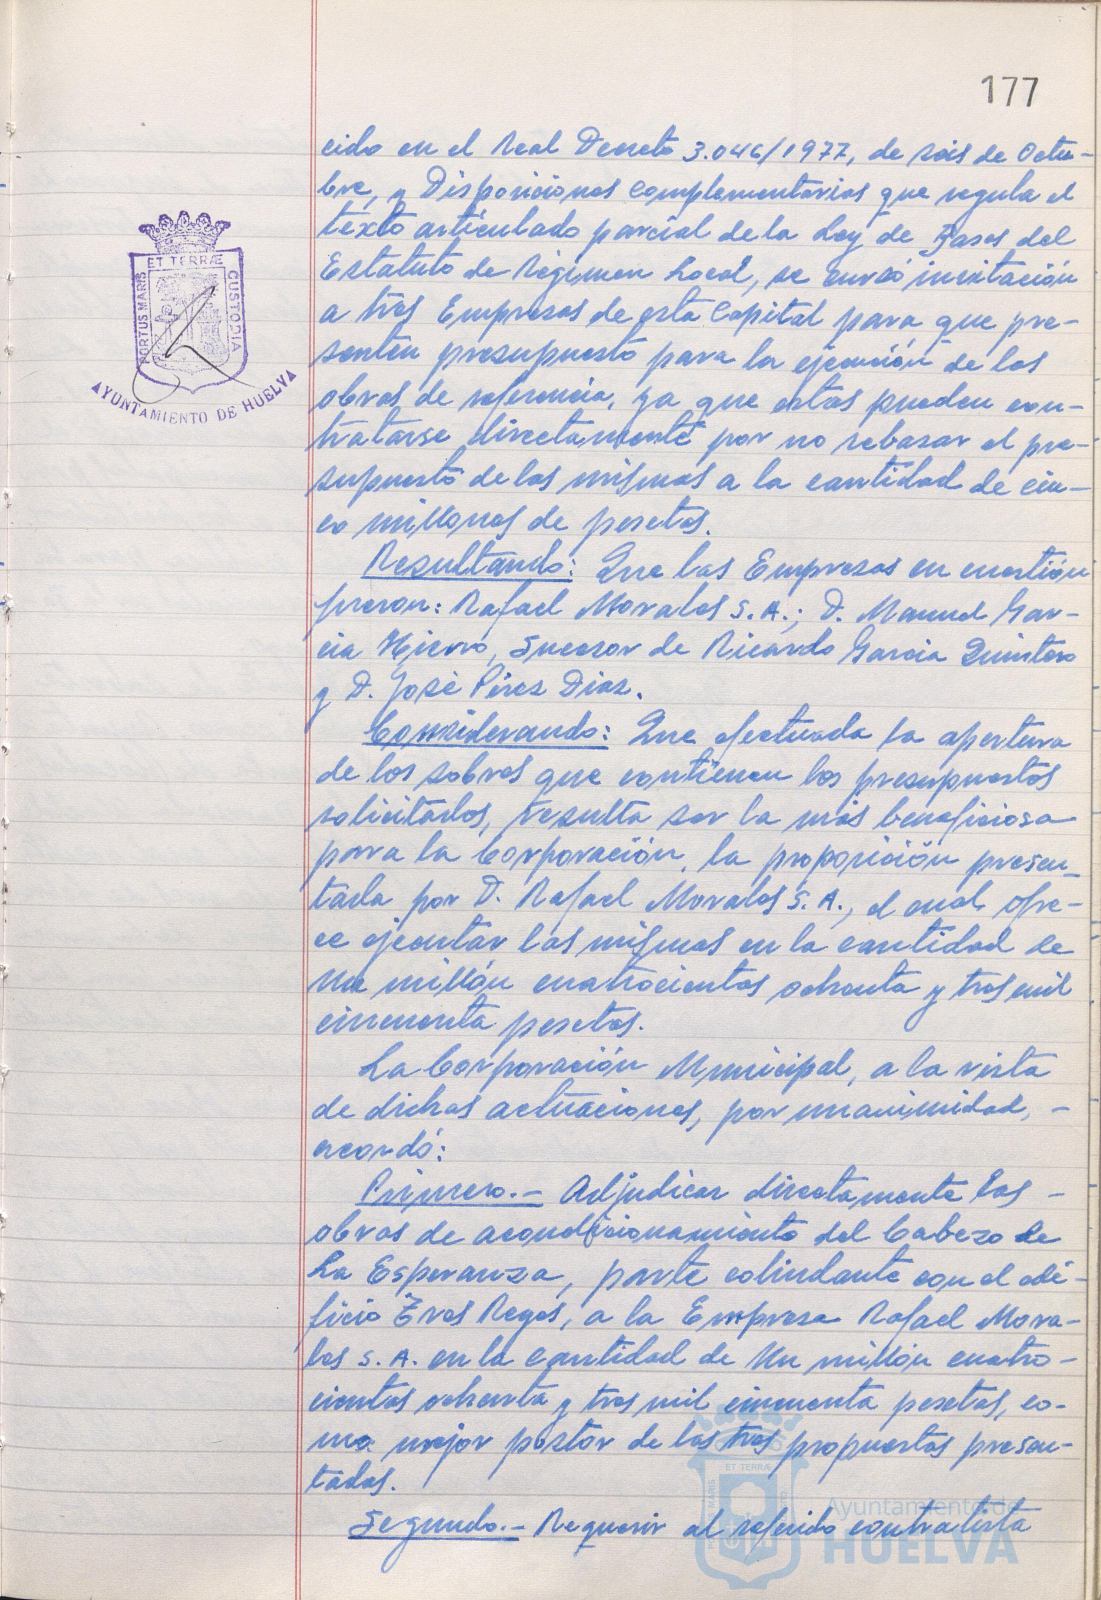 177
cido en el Real Decreto 3.046/1977, de seis de Octu-
bre, y Disposiciones complementarias que regula el
texto articulado parcial de la Ley de Bases del
Estatuto de Régimen Local, se cursó invitación
a tres Empresas de esta Capital para que pre-
senten presupuesto para la ejecución de las
obras de referencia, ya que estas pueden con-
tratarse directamente por no rebasar el pre-
supuesto de las mismas a la cantidad de cin-
co millones de pesetas.
Resultando: Que las Empresas en cuestión
fueron: Rafael Morales S.A.; D. Manuel Gar-
cia Hierro, Sucesor de Ricardo Garcia Quintero
y D. José Pérez Diaz.
Considerando: Que efectuada la apertura
de los sobres que contienen los presupuestos
solicitados, resulta ser la más beneficiosa
para la Corporación, la proposición presen-
tada por D. Rafael Morales S.A., el cual ofre-
ce ejecutar las mismas en la cantidad de
un millón cuatrocientas ochenta y tres mil
cincuenta pesetas.
La Corporación Municipal, a la vista
de dichas actuaciones, por unanimidad, -
acordó:
Primero.- Adjudicar directamente las -
obras de acondicionamiento del Cabezo de
La Esperanza, parte colindante con el edi-
ficio Tres Reyes, a la Empresa Rafael Mora-
les S.A. en la cantidad de un millón cuatro-
cientas ochenta y tres mil cincuenta pesetas, co-
mo mejor postor de las tres propuestas presen-
tadas.
Segundo.- Requerir al referido contratista
PORTUS MARIS
ET TERRÆ
CUSTODIA
AYUNTAMIENTO DE HUELVA
ET TERRÆ
Ayuntamiento de
HUELVA